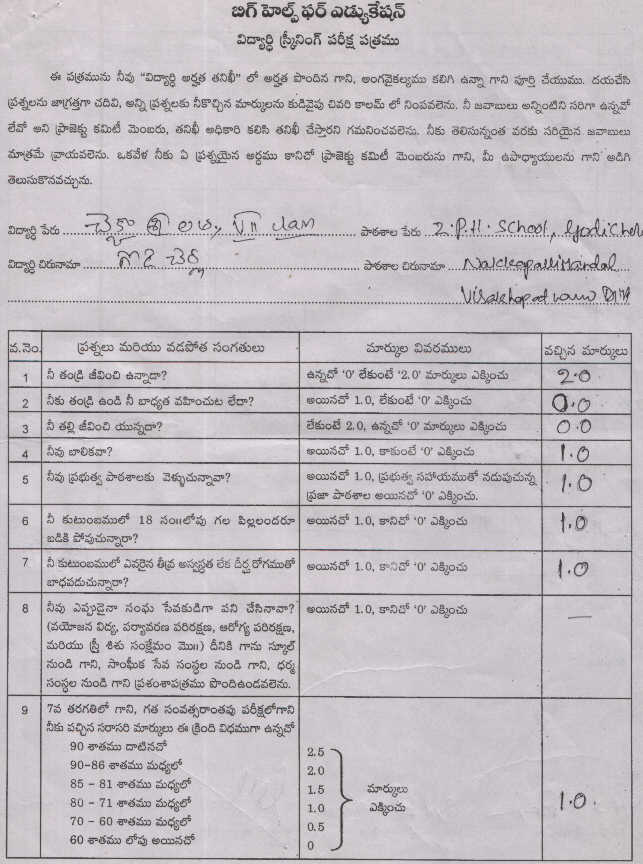 బిగ్ హెల్ప్ ఫర్ ఎడ్యుకేషన్
విద్యార్థి స్క్రీనింగ్ పరీక్ష పత్రము
ఈ పత్రమును నీవు "విద్యార్థి అర్హత తనిఖీ" లో అర్హత పొందిన గాని, అంగవైకల్యము కలిగి ఉన్నా గాని పూర్తి చేయుము. దయచేసి
ప్రశ్నలను జాగ్రత్తగా చదివి, అన్ని ప్రశ్నలకు నీకొచ్చిన మార్కులను కుడివైపు చివరి కాలమ్ లో నింపవలెను. నీ జవాబులు అన్నింటిని సరిగా ఉన్నవో
లేవో అని ప్రాజెక్టు కమిటీ మెంబరు, తనిఖీ అధికారి కలిసి తనిఖీ చేస్తారని గమనించవలెను. నీకు తెలిసున్నంత వరకు సరియైన జవాబులు
మాత్రమే వ్రాయవలెను. ఒకవేళ నీకు ఏ ప్రశ్నయైన అర్థము కానిచో ప్రాజెక్టు కమిటీ మెంబరును గాని, మీ ఉపాధ్యాయులను గాని అడిగి
తెలుసుకొనవచ్చును.
విద్యార్థి పేరు VII class పాఠశాల పేరు Z.P.H. School,
విద్యార్థి చిరునామా పాఠశాల చిరునామా Nakkapalli Mandal
Visakhapatnam Dist
వ.నెం. ప్రశ్నలు మరియు వడపోత సంగతులు మార్కుల వివరములు వచ్చిన మార్కులు
1 నీ తండ్రి జీవించి ఉన్నాడా? ఉన్నచో '0' లేకుంటే '2.0' మార్కులు ఎక్కించు 2.0
2 నీకు తండ్రి ఉండి నీ బాధ్యత వహించుట లేదా? అయినచో 1.0, లేకుంటే '0' ఎక్కించు 0.0
3 నీ తల్లి జీవించి యున్నదా? లేకుంటే 2.0, ఉన్నచో '0' మార్కులు ఎక్కించు 0.0
4 నీవు బాలికవా? అయినచో 1.0, కాకుంటే '0' ఎక్కించు 1.0
5 నీవు ప్రభుత్వ పాఠశాలకు వెళ్ళుచున్నావా? అయినచో 1.0, ప్రభుత్వ సహాయముతో నడుపుచున్న
ప్రజా పాఠశాల అయినచో '0' ఎక్కించు. 1.0
6 నీ కుటుంబములో 18 సం॥లోపు గల పిల్లలందరూ అయినచో 1.0, కానిచో '0' ఎక్కించు 1.0
బడికి పోవుచున్నారా?
7 నీ కుటుంబములో ఎవరైన తీవ్ర అస్వస్థత లేక దీర్ఘ రోగముతో అయినచో 1.0, కానిచో '0' ఎక్కించు 1.0
బాధపడుచున్నారా?
8 నీవు ఎప్పుడైనా సంఘ సేవకుడిగా పని చేసినావా? అయినచో 1.0, కానిచో '0' ఎక్కించు —
(వయోజన విద్య, పర్యావరణ పరిరక్షణ, ఆరోగ్య పరిరక్షణ,
మరియు స్త్రీ శిశు సంక్షేమం మొ॥) దీనికి గాను స్కూల్
నుండి గాని, సాంఘీక సేవ సంస్థల నుండి గాని, ధర్మ
సంస్థల నుండి గాని ప్రశంశాపత్రము పొందిఉండవలెను.
9 7వ తరగతిలో గాని, గత సంవత్సరాంతపు పరీక్షలోగాని
నీకు వచ్చిన సరాసరి మార్కులు ఈ క్రింది విధముగా ఉన్నచో
90 శాతము దాటినచో 2.5
90-86 శాతము మధ్యలో 2.0
85 - 81 శాతము మధ్యలో 1.5 మార్కులు
80 - 71 శాతము మధ్యలో 1.0 ఎక్కించు 1.0
70 - 60 శాతము మధ్యలో 0.5
60 శాతము లోపు అయినచో 0